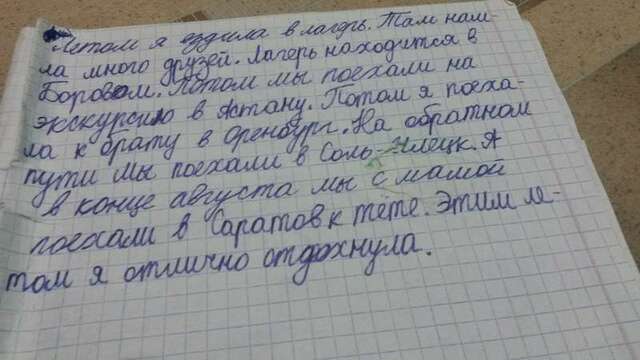 Летом я ездила в лагерь. Там наш-
ла много друзей. Лагерь находится в
Боровом. Потом мы поехали на
экскурсию в Астану. Потом я поеха-
ла к брату в Оренбург. На обратном
пути мы поехали в Соль-Илецк. А
в конце августа мы с мамой
поехали в Саратов к тёте. Этим ле-
том я отлично отдохнула.